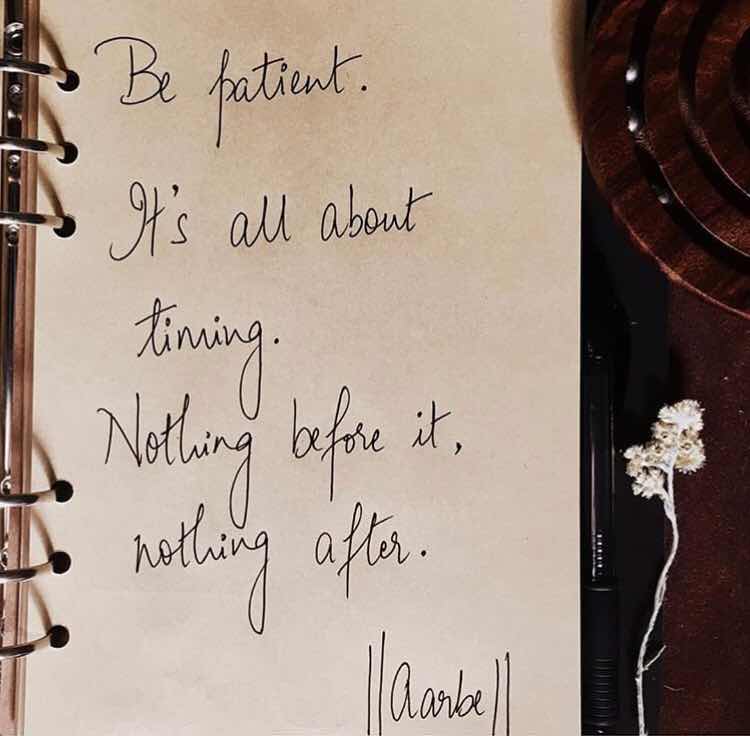 Be patient.
It's all about
timing.
Nothing before it,
nothing after.
||Aarbe||